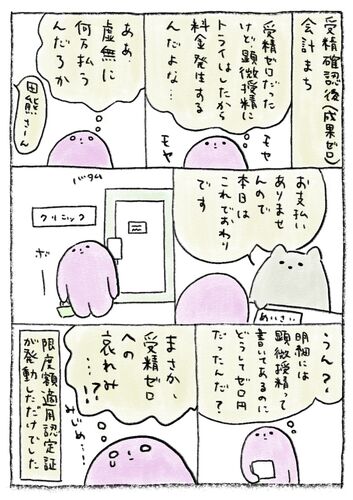 受精確認後(成果ゼロ)
会計まち
受精ゼロだった
けど顕微授精に
トライはしたから
料金発生する
んだよな…
モヤ
モヤ
ああ
虚無に
何万払う
んだろか
田熊さーん
お支払い
ありませ
んので
本日は
これでおわり
です
めいさい
バタム
クリニック
ボー
うん?
明細には
顕微授精って
書いてあるのに
どうしてゼロ円
だったんだ?
まさか、
受精ゼロ
への
哀れみ
…?!
みじめ…
限度額適用認定証
が発動しただけでした